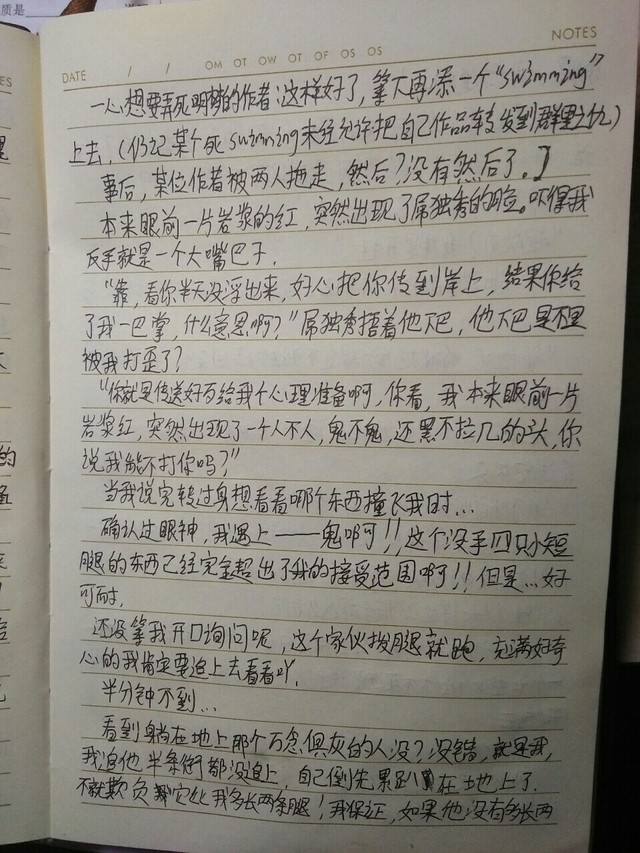 质是
DATE / / OM OT OW OT OF OS OS NOTES
一心想要弄死明梦的作者:这样好了,笔下再添一个“swimming”
上去,(仍记某个死swimming未经允许把自己作品转发到群里之仇)
事后,某位作者被两人拖走,然后?没有然后了。】
本来眼前一片岩浆的红,突然出现了屌独秀的脸。吓得我
反手就是一个大嘴巴子.
“靠,看你半天没浮出来,好心把你传到岸上,结果你给
了我一巴掌,什么意思啊?”屌独秀捂着他下巴,他下巴是不是
被我打歪了?
“你就是传送好歹给我个心理准备啊,你看,我本来眼前一片
岩浆红,突然出现了一个人不人,鬼不鬼,还黑不拉几的头,你
说我能不打你吗?”
当我说完转过身想看看哪个东西撞飞我时...
确认过眼神,我遇上——鬼啊!!这个没手四只小短
腿的东西已经完全超出了我的接受范围啊!!但是...好
可耐.
还没等我开口询问呢,这个家伙拨腿就跑,充满好奇
心的我肯定要追上去看看吖.
半分钟不到...
看到躺在地上那个万念俱灰的人没?没错,就是我,
我追他半条街都没追上,自己倒先累趴在地上了.
不就欺负我它比我多长两条腿!我保证,如果他没有多长两
ES
的